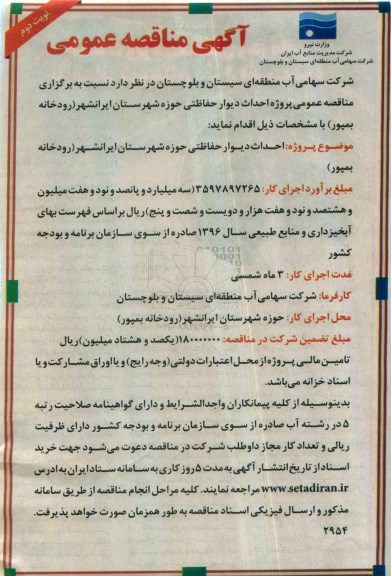 نوبت دوم
وزارت نیرو
شرکت مدیریت منابع آب ایران
شرکت سهامی آب منطقه‌ای سیستان و بلوچستان
آگهی مناقصه عمومی
شرکت سهامی آب منطقه‌ای سیستان و بلوچستان در نظر دارد نسبت به برگزاری
مناقصه عمومی پروژه احداث دیوار حفاظتی حوزه شهرستان ایرانشهر(رودخانه
بمپور) با مشخصات ذیل اقدام نماید:
موضوع پروژه: احداث دیوار حفاظتی حوزه شهرستان ایرانشهر(رودخانه
بمپور)
مبلغ برآورد اجرای کار: ۳۵۹۷۸۹۷۲۶۵(سه میلیارد و پانصد و نود و هفت میلیون
و هشتصد و نود و هفت هزار و دویست و شصت و پنج)ریال براساس فهرست بهای
آبخیزداری و منابع طبیعی سال ۱۳۹۶ صادره از سوی سازمان برنامه و بودجه
کشور
مدت اجرای کار: ۳ ماه شمسی
کارفرما: شرکت سهامی آب منطقه‌ای سیستان و بلوچستان
محل اجرای کار: حوزه شهرستان ایرانشهر(رودخانه بمپور)
مبلغ تضمین شرکت در مناقصه: ۱۸۰۰۰۰۰۰۰(یکصد و هشتاد میلیون)ریال
تامین مالی پروژه از محل اعتبارات دولتی(وجه رایج) و یا اوراق مشارکت و یا
اسناد خزانه می‌باشد.
بدینوسیله از کلیه پیمانکاران واجدالشرایط و دارای گواهینامه صلاحیت رتبه
۵ در رشته آب صادره از سوی سازمان برنامه و بودجه کشور دارای ظرفیت
ریالی و تعداد کار مجاز داوطلب شرکت در مناقصه دعوت می‌شود جهت خرید
اسناد از تاریخ انتشار آگهی به مدت ۵ روز کاری به سامانه ستاد ایران به ادرس
www.setadiran.ir مراجعه نمایند. کلیه مراحل انجام مناقصه از طریق سامانه
مذکور و ارسال فیزیکی اسناد مناقصه به طور همزمان صورت خواهد پذیرفت.
۲۹۵۴